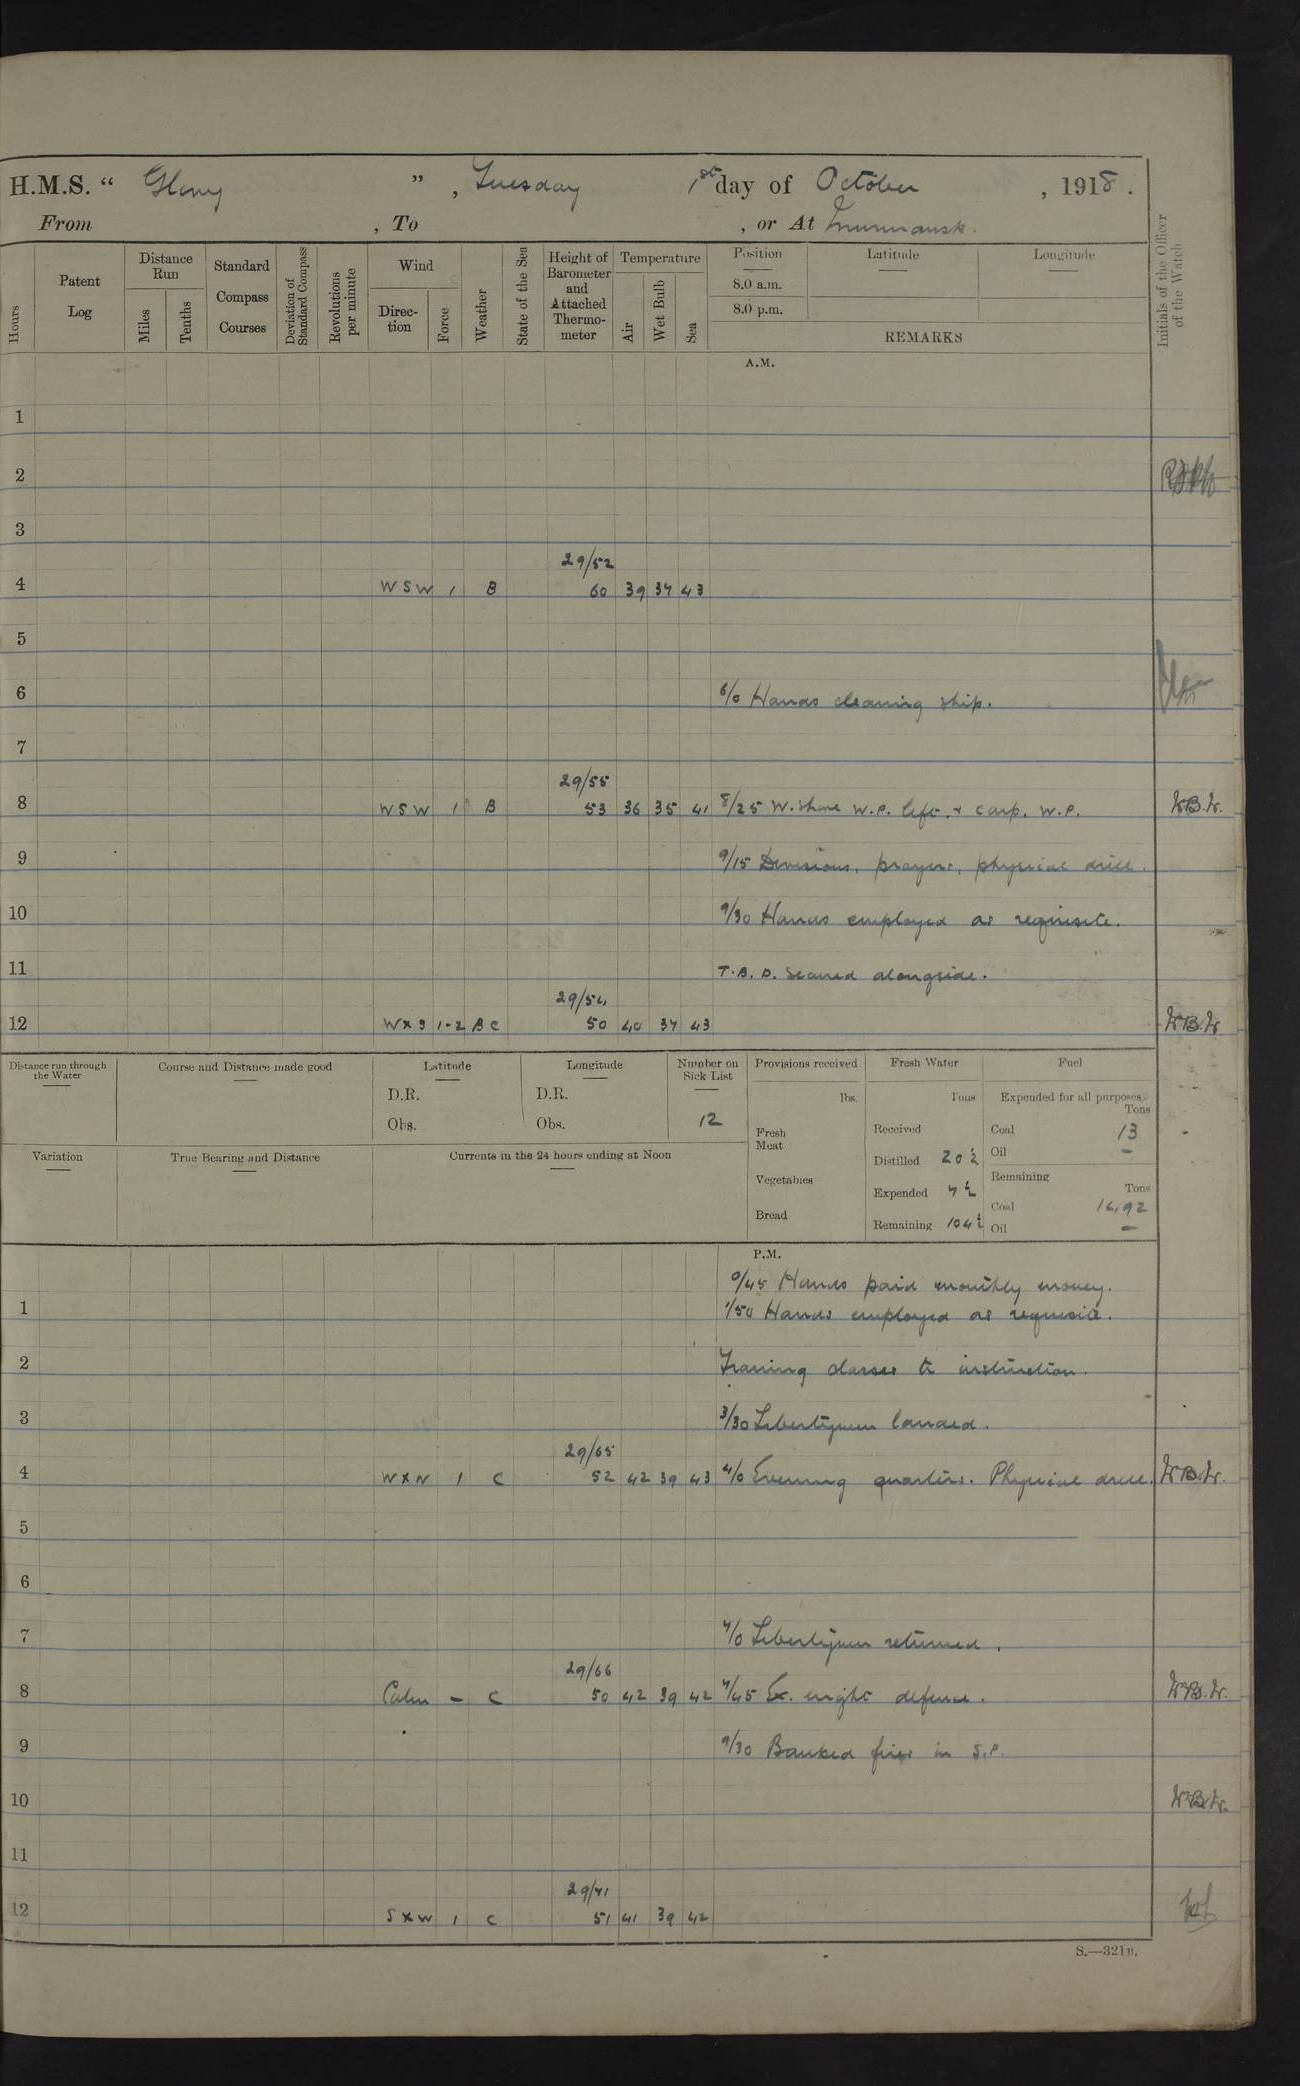 H.M.S. “ Glory ” , Tuesday 1st day of October , 1918 .
From , To , or At Murmansk.
Hours
Patent Log
Distance Run
Miles
Tenths
Standard Compass Courses
Deviation of Standard Compass
Revolutions per minute
Wind
Direc-tion
Force
Weather
State of the Sea
Height of Barometer and Attached Thermo-meter
Temperature
Air
Wet Bulb
Sea
Position
8.0 a.m.
8.0 p.m.
Latitude
Longitude
REMARKS
Initials of the Officer of the Watch
A.M.
1
2
3
29/52
4 WSW 1 B 60 39 37 43
5
6 6/0 Hands cleaning ship.
7
29/55
8 WSW 1 B 53 36 35 41 8/25 W. shore W.P. left. + carp. W.P. W.B.W.
9 9/15 Divisions, prayers, physical drill.
10 9/30 Hands employed as requisite.
11 T.B.D. secured alongside.
29/54
12 WXS 1-2 BC 50 40 37 43 W.B.W.
Distance run through the Water
Course and Distance made good
Latitude
D.R.
Obs.
Longitude
D.R.
Obs.
Number on Sick List
12
Provisions received
lbs.
Fresh Meat
Vegetables
Bread
Fresh Water
Tons
Received
Distilled 20½
Expended 7½
Remaining 104½
Fuel
Expended for all purposes.
Tons
Coal 13
Oil –
Remaining
Tons
Coal 1492
Oil –
Variation
True Bearing and Distance
Currents in the 24 hours ending at Noon
P.M.
0/45 Hands paid monthly money.
1 1/50 Hands employed as requisite.
2 Training classes to instruction.
3 3/30 Libertymen landed.
29/65
4 WXN 1 C 52 42 39 43 4/0 Evening quarters. Physical drill. W.B.W.
5
6
7 7/0 Libertymen returned.
29/66
8 Calm – C 50 42 39 42 7/45 Ex. night defence. W.B.W.
9 9/30 Banked fires in S.P.
10 W.B.W.
11
29/71
12 SXW 1 C 51 41 39 42
S.—321B.